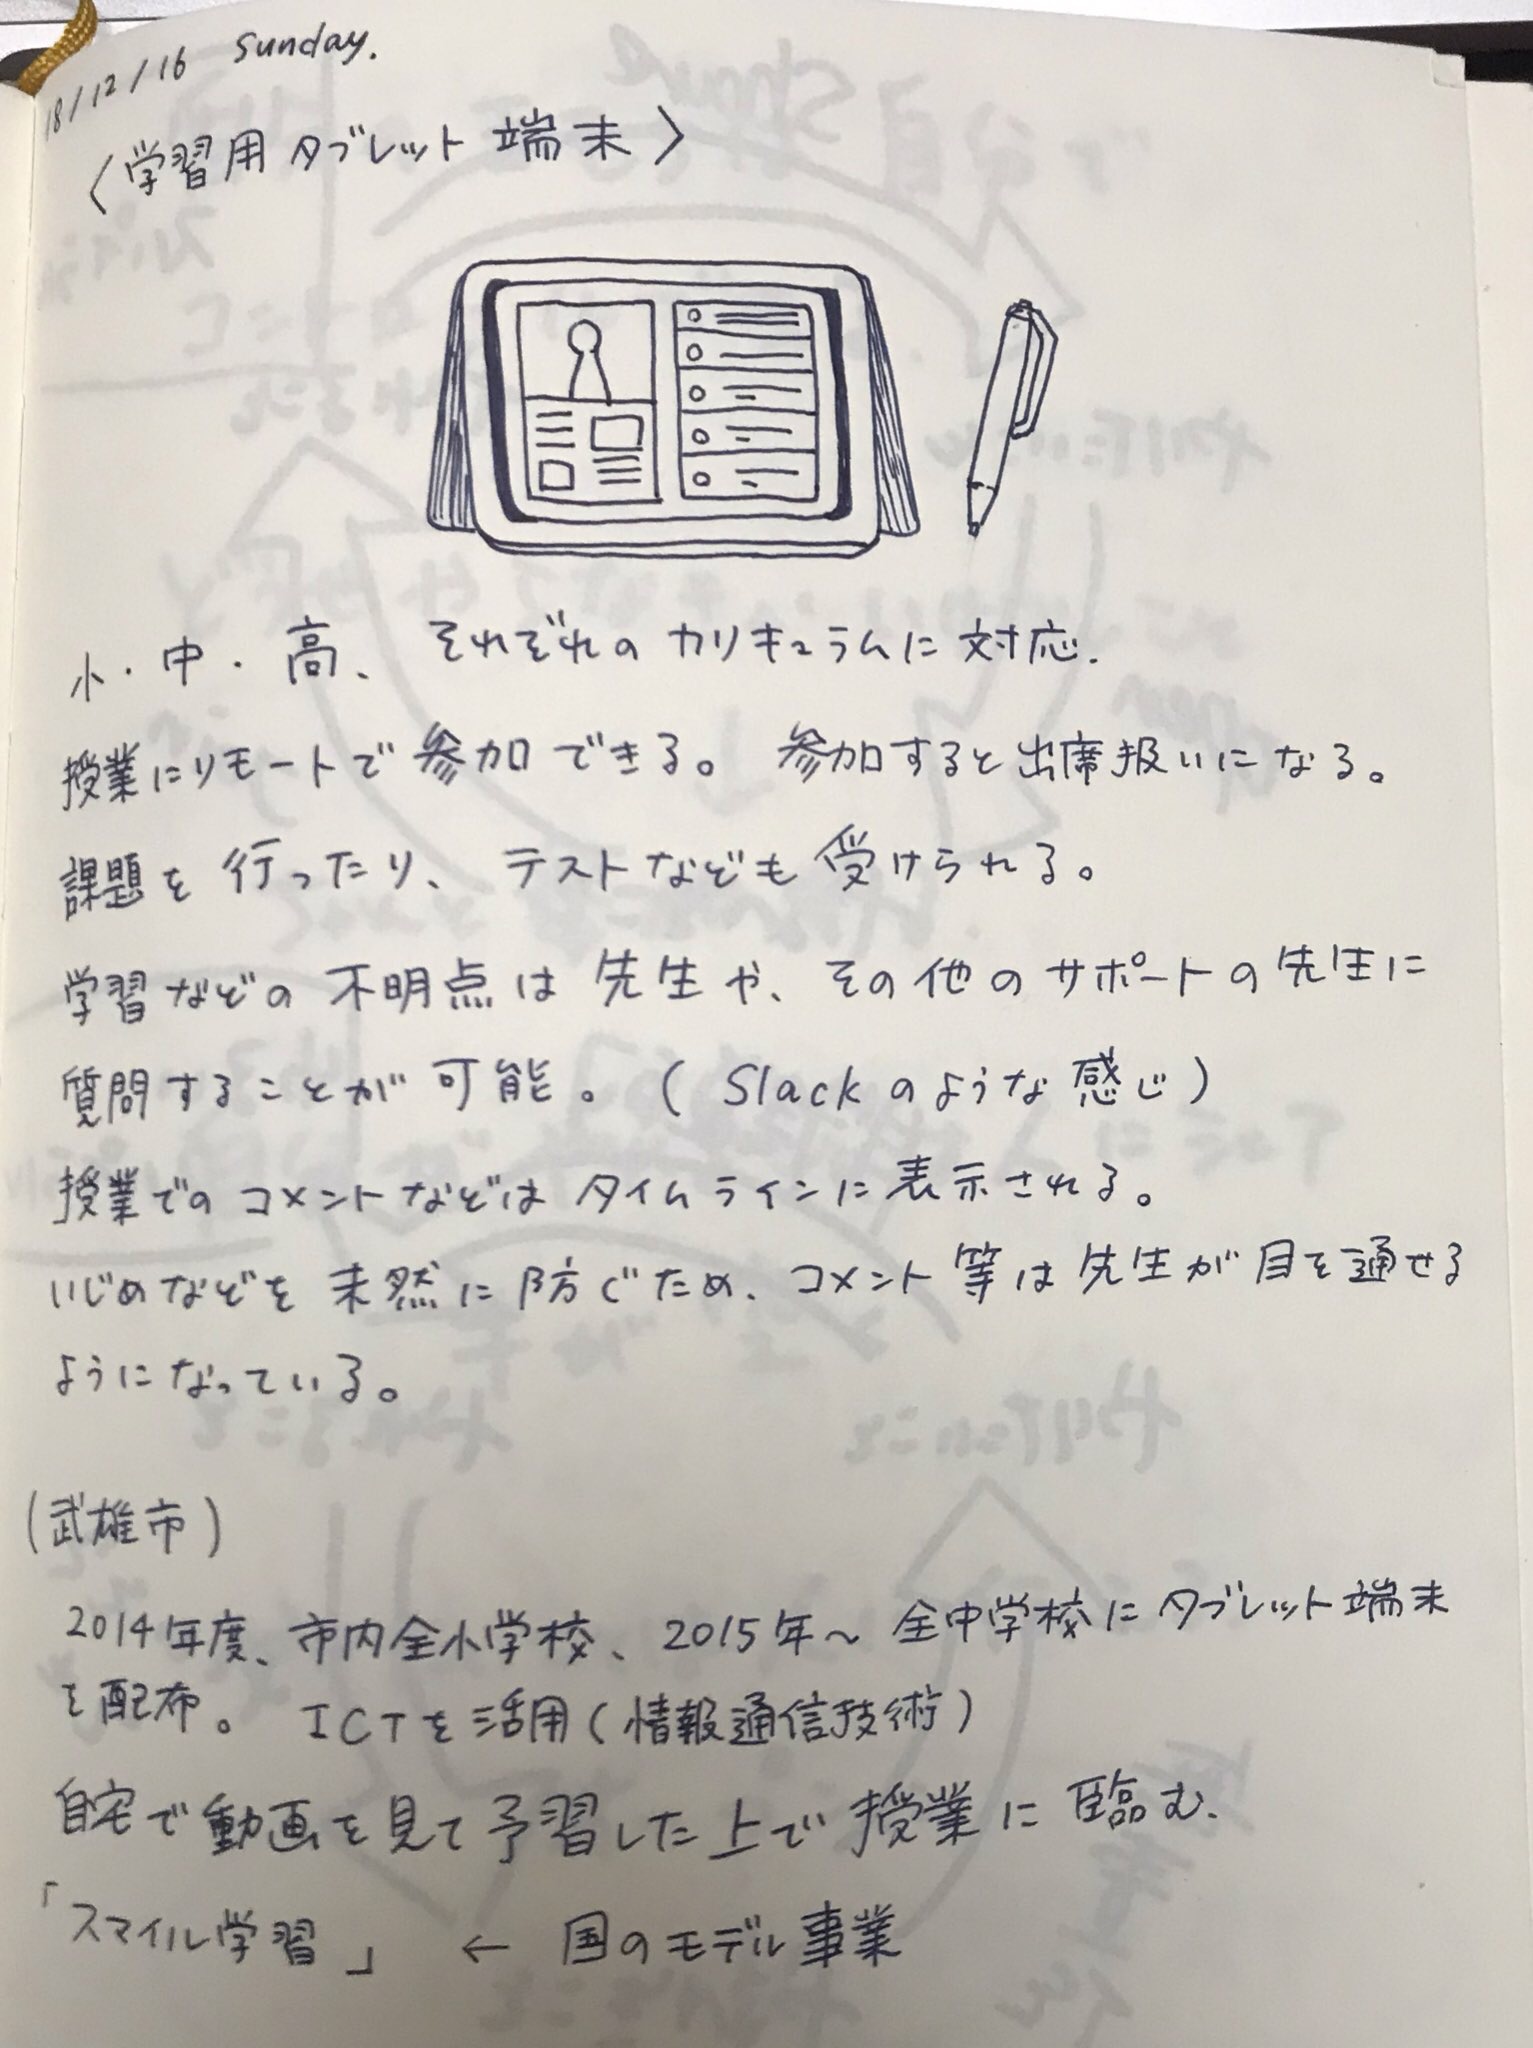 18/12/16 Sunday.
〈学習用タブレット端末〉
小・中・高、それぞれのカリキュラムに対応.
授業にリモートで参加できる。参加すると出席扱いになる。
課題を行ったり、テストなども受けられる。
学習などの不明点は先生や、その他のサポートの先生に
質問することが可能。(Slackのような感じ)
授業でのコメントなどはタイムラインに表示される。
いじめなどを未然に防ぐため、コメント等は先生が目を通せる
ようになっている。
(武雄市)
2014年度、市内全小学校、2015年〜全中学校にタブレット端末
を配布。ICTを活用(情報通信技術)
自宅で動画を見て予習した上で授業に臨む、
「スマイル学習」 ← 国のモデル事業